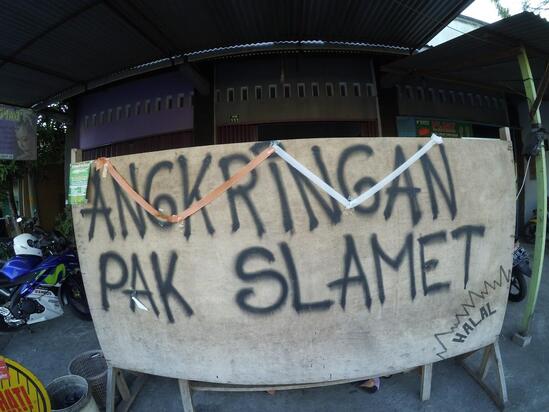 ANGKRiNGAN
PAK SLAMET
HALAL